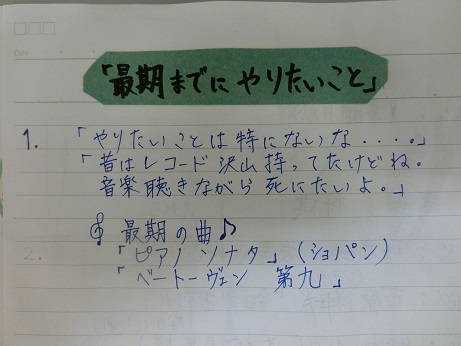 Date
「最期までに やりたいこと」
1. 「やりたいことは特にないな・・・・。」
「昔はレコード沢山持ってたけどね。
音楽聴きながら死にたいよ。」
𝄞 最期の曲♪
2. 「ピアノ ソナタ」(ショパン)
「ベートーヴェン 第九」